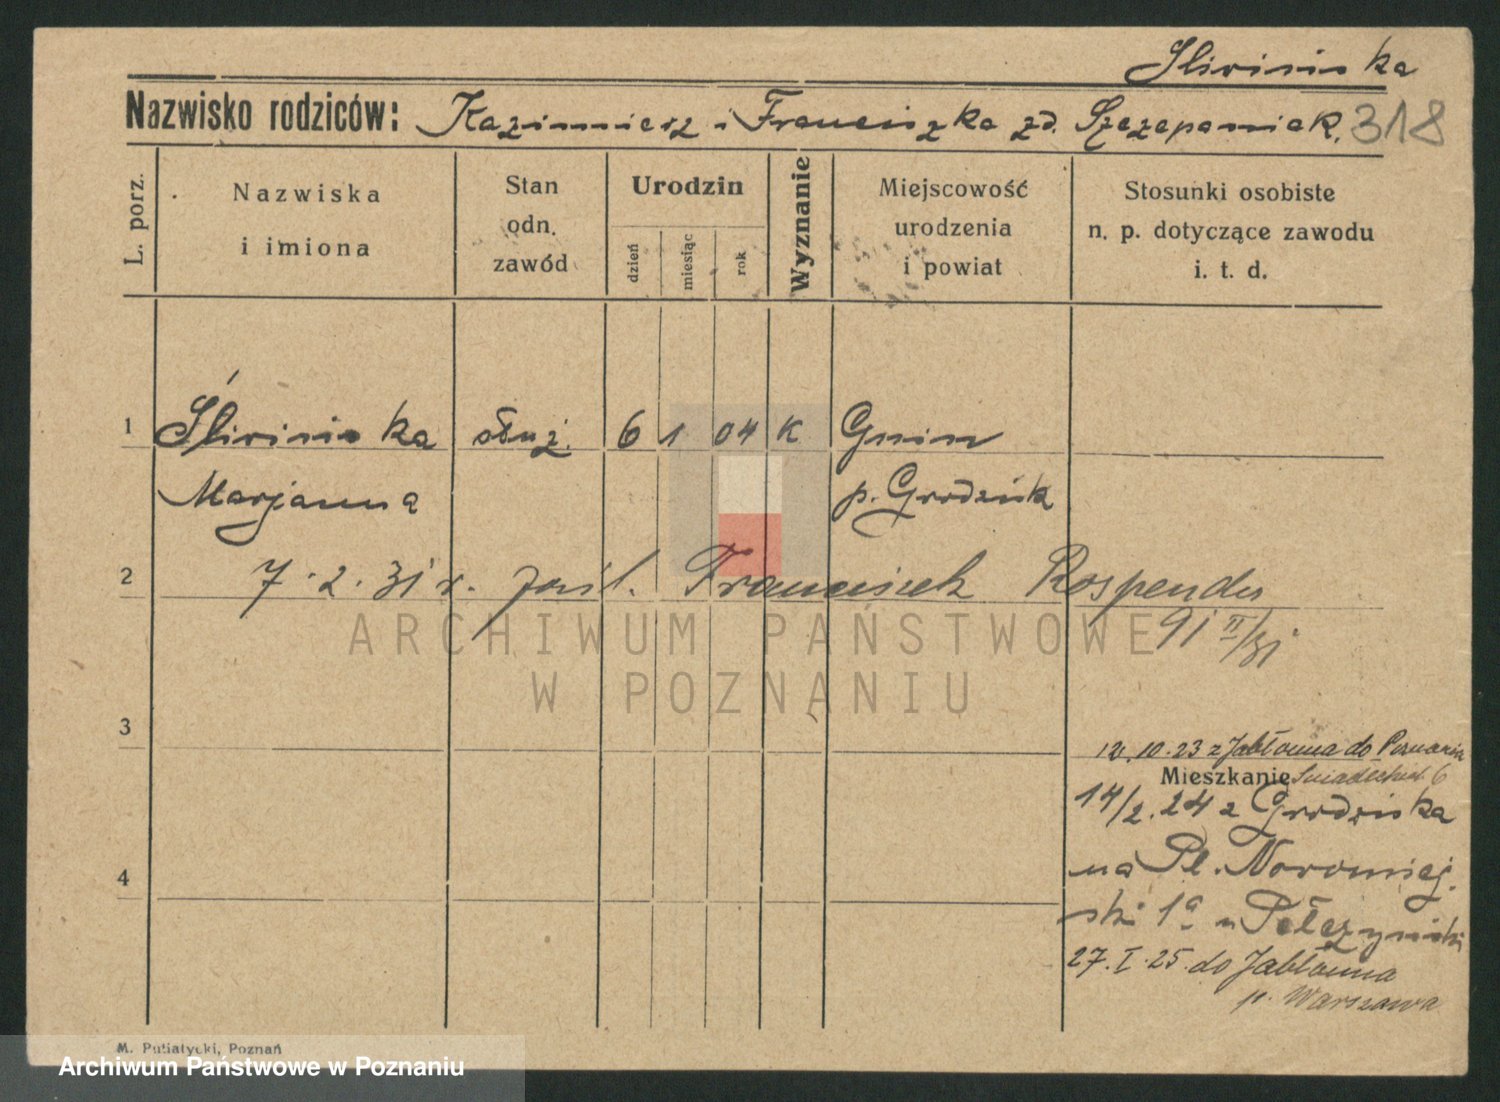 Śliwińska
Nazwisko rodziców: Kazimierz i Franciszka zd. Szczepaniak. 318
L. porz.
Nazwiska
i imiona
Stan
odn.
zawód
Urodzin
dzień
miesiąc
rok
Wyznanie
Miejscowość
urodzenia
i powiat
Stosunki osobiste
n. p. dotyczące zawodu
i. t. d.
1 Śliwińska służ. 6 1 04 K Gnin
Marjanna p. Grodzisk
2 7.2.31 r. zaśl. Franciszek Rospenda
91 II/31
ARCHIWUM PAŃSTWOWE
W POZNANIU
3
12.10.23 z Jabłonna do Poznania
Mieszkanie Śniadeckich 6
14/2.24 z Grodziska
4
na Pl. Nowomiej.
ski 1a u Pełczyński
27.I.25. do Jabłonna
p. Warszawa
M. Putiatycki, Poznań
Archiwum Państwowe w Poznaniu